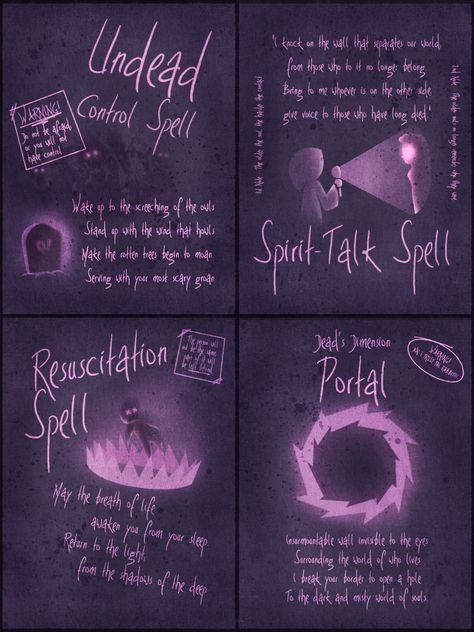 Undead
Control Spell
WARNING!
Do not be afraid,
or you will not
have control
Wake up to the screeching of the owls
Stand up with the wind that howls
Make the rotten trees begin to moan
Serving with your most scary groan
"I knock on the wall that separates our world,
from those who to it no longer belong
Bring to me whoever is on the other side
give voice to those who have long died."
Spirit-Talk Spell
Resuscitation
Spell
The person will
not be the same,
part of it will
be left behind
May the breath of life
awaken you from your sleep
Return to the light,
from the shadows of the deep
Dead's Dimension
Portal
WARNING!
Insurmountable wall invisible to the eyes
Surrounding the world of who lives
I break your border to open a hole
To the dark and misty world of souls.